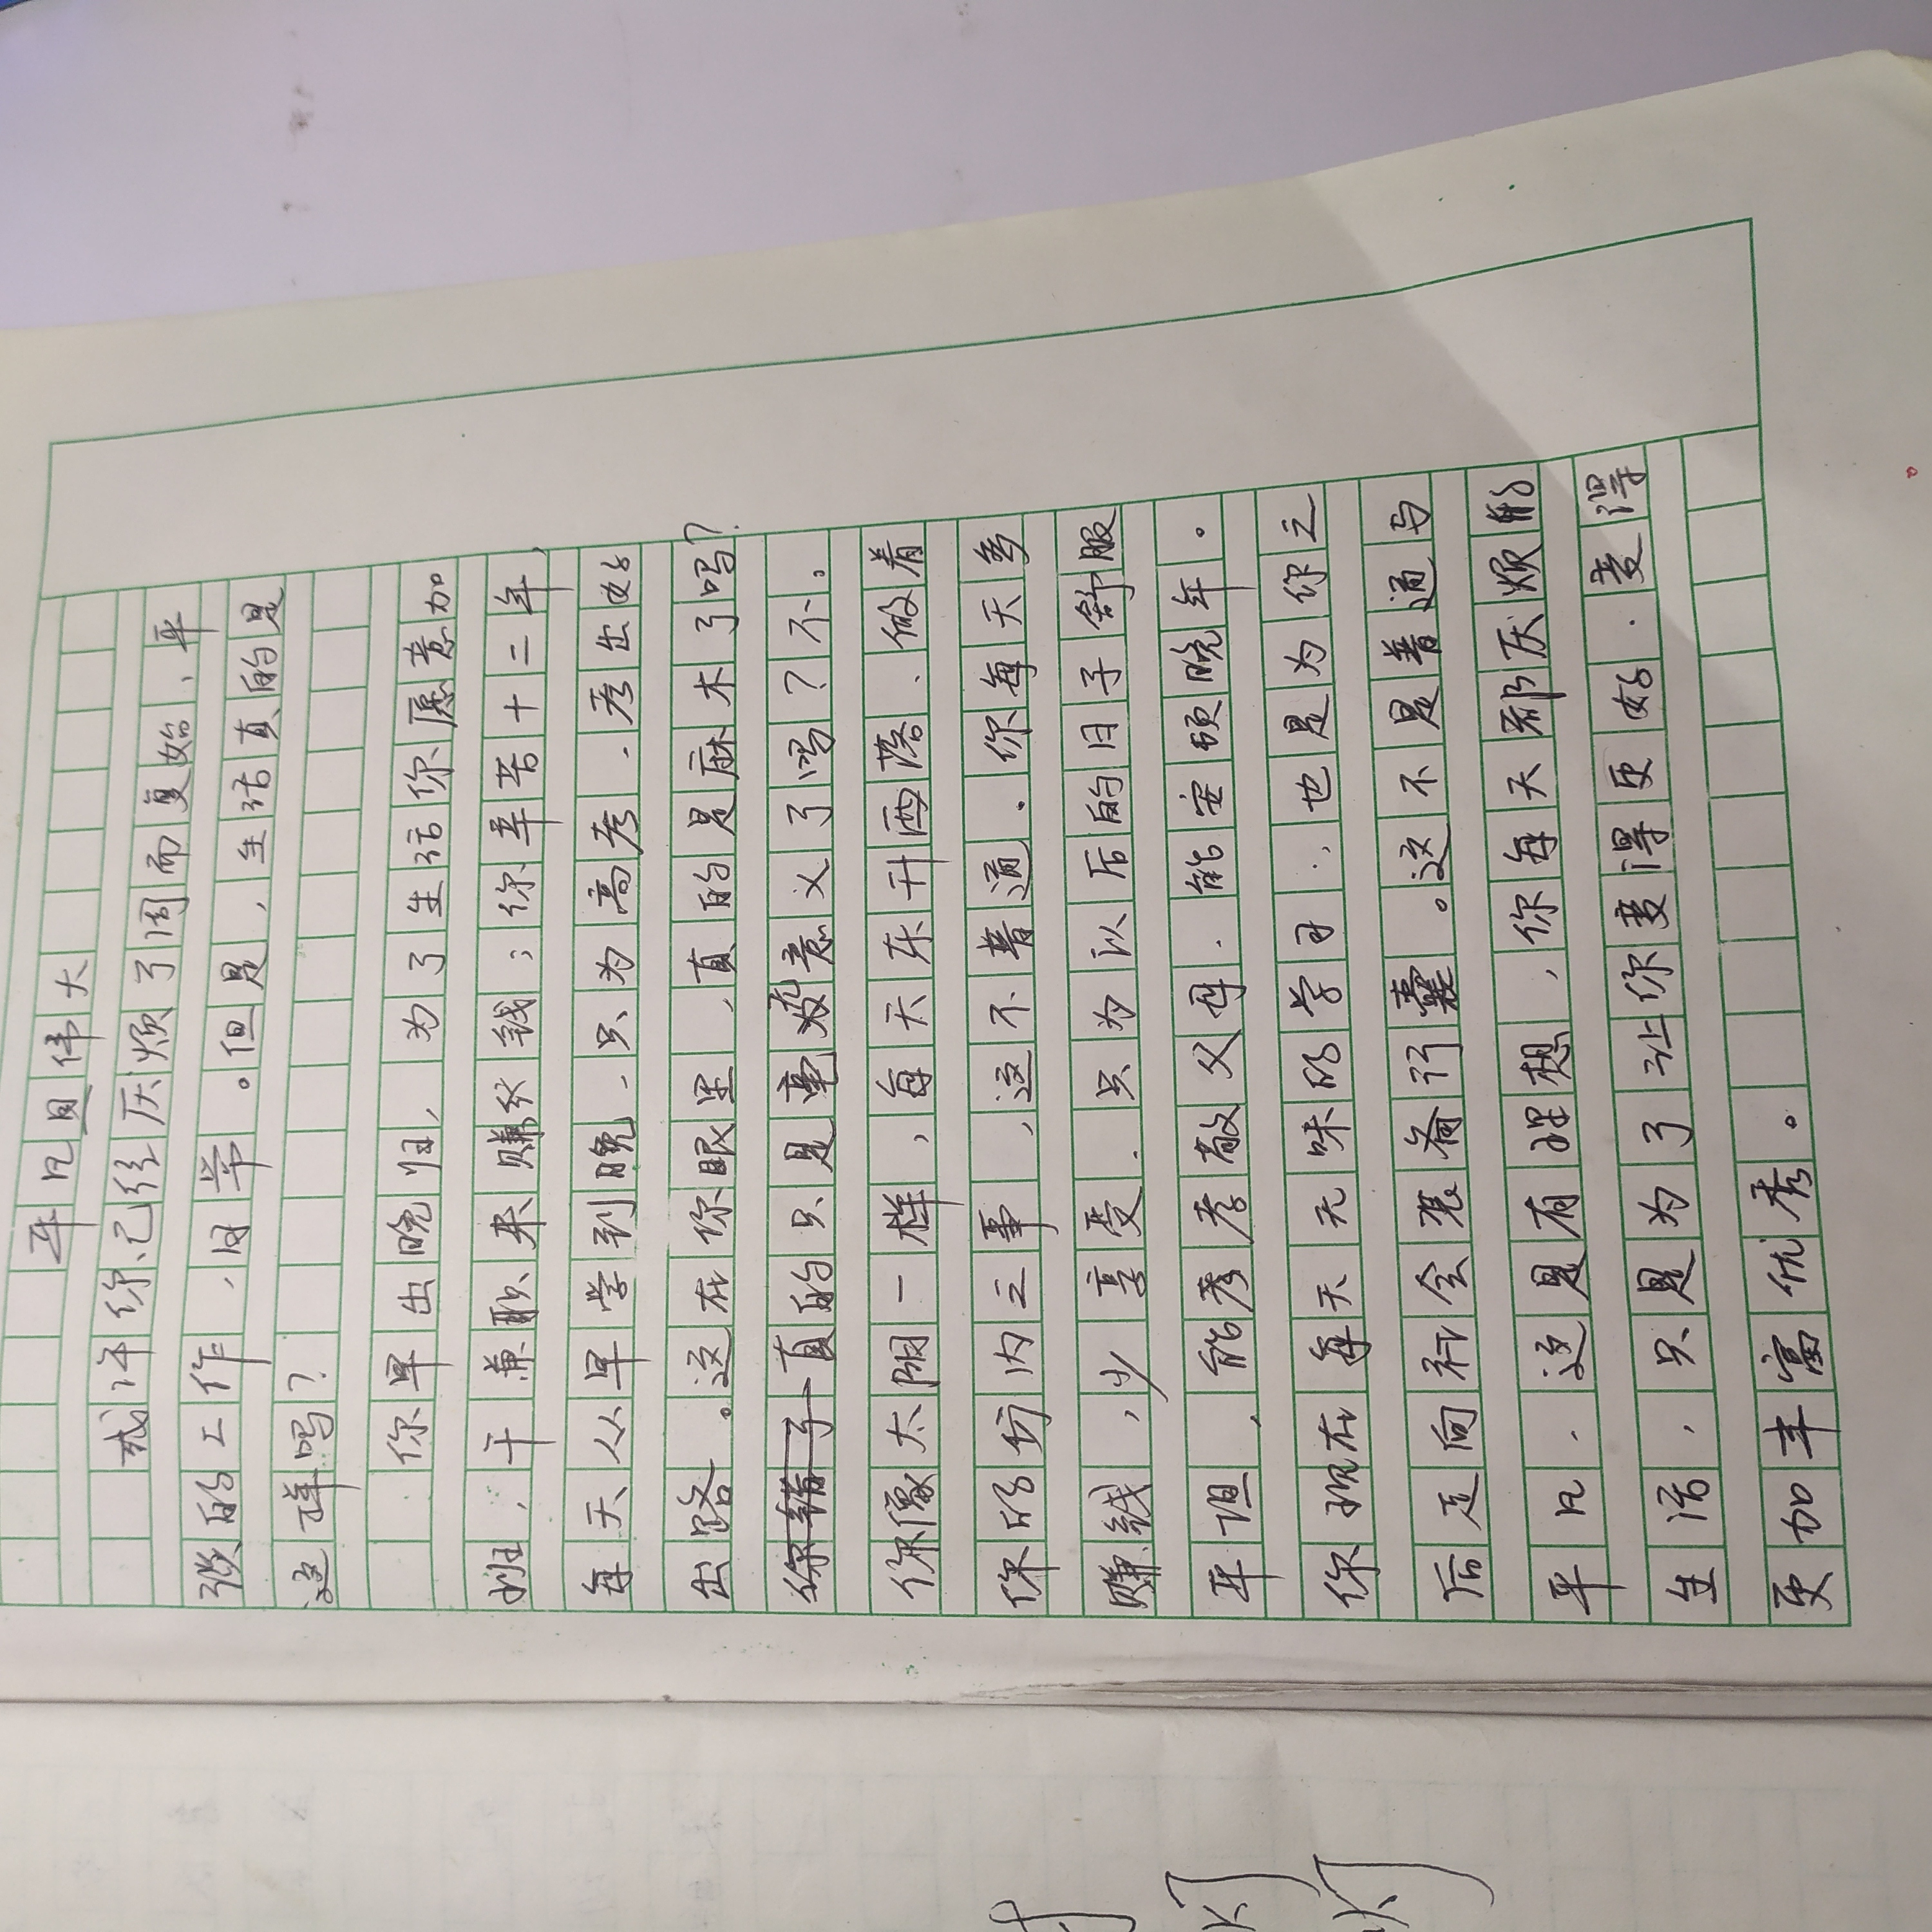 平凡且伟大
或许你已经厌烦了周而复始、平
淡的工作,日常。但是,生活真的是
这样吗?
你早出晚归,为了生活你愿意加
班,干兼职来赚外钱;你辛苦十二年,
每天从早学到晚,只为高考,考出好
出路。这在你眼里,真的是麻木了吗?
真的只是毫意义了吗?不。
你像太阳一样,每天东升西落、做着
你的份内之事,这不普通。你每天多
赚钱,少享受,只为以后的日子舒服
平坦,能孝敬父母,能安顿晚年。
你现在每天无味的学习,也是为你之
后走向社会装备行囊。这不是普通与
平凡,这是有理想,你每天那厌烦的
生活,只是为了让你变得更好,变得
更加丰富优秀。
灯
灯